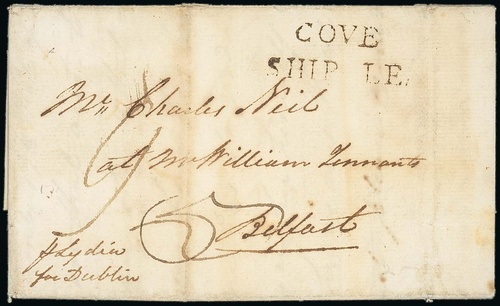 COVE
SHIP LE
Mr. Charles Neil
at Mr William Tennants
Belfast
p Lydia
for Dublin